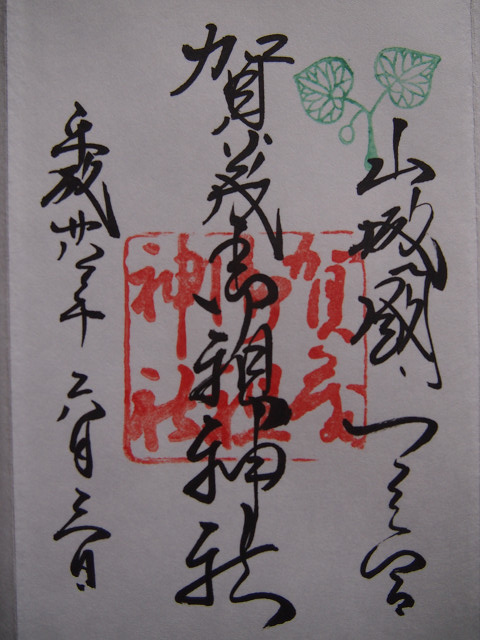 山城國一之宮
賀茂御祖神社
平成廿八年六月三日
賀茂
御祖
神社